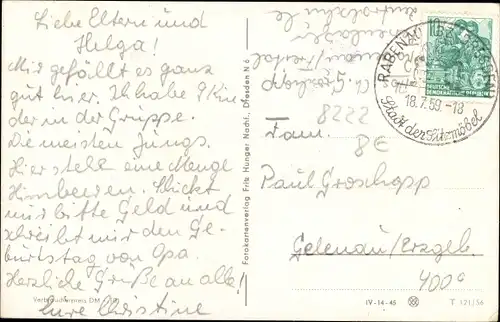 Liebe Eltern und
Helga!
Mir gefällt es ganz
gut hier. Ich habe 9 Kin-
der in der Gruppe.
Die meisten Jungs.
Hier steh eine Menge
Himbeeren. Schickt
mir bitte Geld und
schreibt mir den Ge-
burtstag von Opa.
Herzliche Grüße an alle!
Eure Christine
Fotokartenverlag Fritz Hunger Nachf., Dresden N 6
RABENAU
18.7.59.-18
Stadt der Sitzmöbel
10
DEUTSCHE
DEMOKRATISCHE REPUBLIK
8222
Fam.
8E
Paul Groschopp
Gelenau/Erzgeb.
400c
IV-14-45
T 121/56